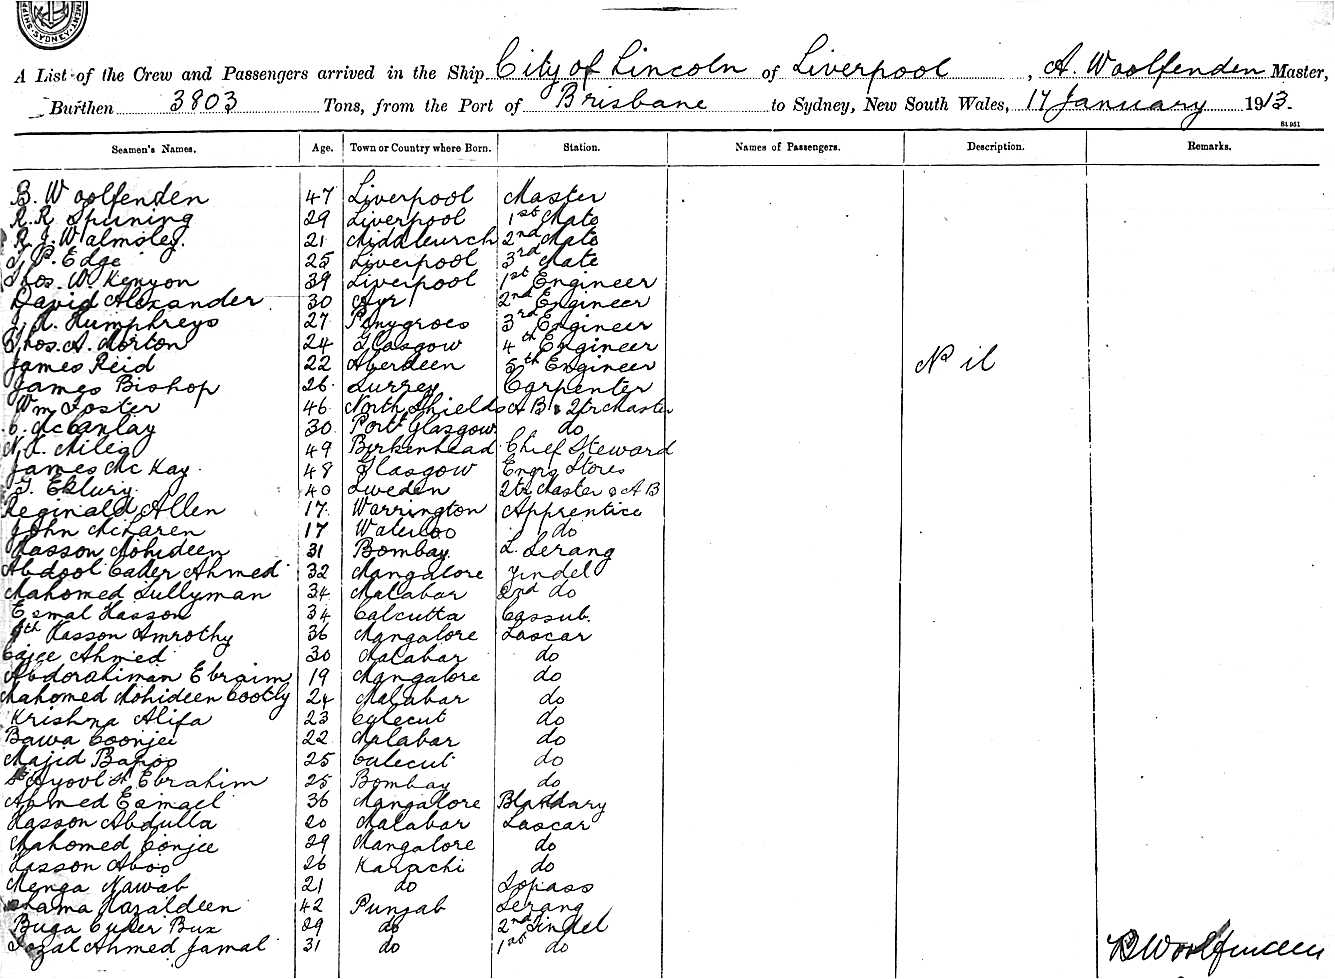 A List of the Crew and Passengers arrived in the Ship City of Lincoln of Liverpool, A. Woolfenden Master,
Burthen 3803 Tons, from the Port of Brisbane to Sydney, New South Wales, 17 January 1913.
Seamen's Names. Age. Town or Country where Born. Station. Names of Passengers. Description. Remarks.
B. Woolfenden 47 Liverpool Master
R.R. Spurling 29 Liverpool 1st Mate
R.J. Walmsley. 21 2nd Mate
J.P. Edge 25 Liverpool 3rd Mate
Thos. W. Kenyon 39 Liverpool 1st Engineer
David Alexander 30 Ayr 2nd Engineer
J.R. Humphreys 27 Penygroes 3rd Engineer
Thos. A. Morton 24 Glasgow 4th Engineer
James Reid 22 Aberdeen 5th Engineer Nil
James Bishop 26 Surrey Carpenter
Wm Foster 46 North Shields A B & Qtr Master
C. McCanlay 30 Port Glasgow do
49 Birkenhead Chief Steward
James McKay 48 Glasgow Engrs Stores
40 Sweden Qtr Master & A B
Reginald Allen 17 Warrington Apprentice
John McLaren 17 Waterloo do
Hasson Mohideen 31 Bombay L. Serang
Abdool Cader Ahmed 32 Mangalore Tindel
Mahomed Sullyman 34 Malabar 2nd do
Esmal Hasson 34 Calcutta Cassub.
Hasson Amrothy 36 Mangalore Lascar
Cajee Ahmed 30 Malabar do
Abdorahiman Ebraim 19 Mangalore do
Mahomed Mohideen Cootty 24 Malabar do
Krishna Alifa 23 Calecut do
Bawa Coonjee 22 Malabar do
Majid Bapoo 25 Calecut do
Ebrahim 25 Bombay do
Ahmed Esmael 36 Mangalore Bhandary
Hasson Abdulla 20 Malabar Lascar
Mahomed Conjee 29 Mangalore do
Hasson Aboo 26 Karachi do
Menga Nawab 21 do Topass
Fazaldeen 42 Punjab Serang
Buga Cuder Bux 29 do 2nd Tindel
Fozal Ahmed Jamal 31 do 1st do
B Woolfenden